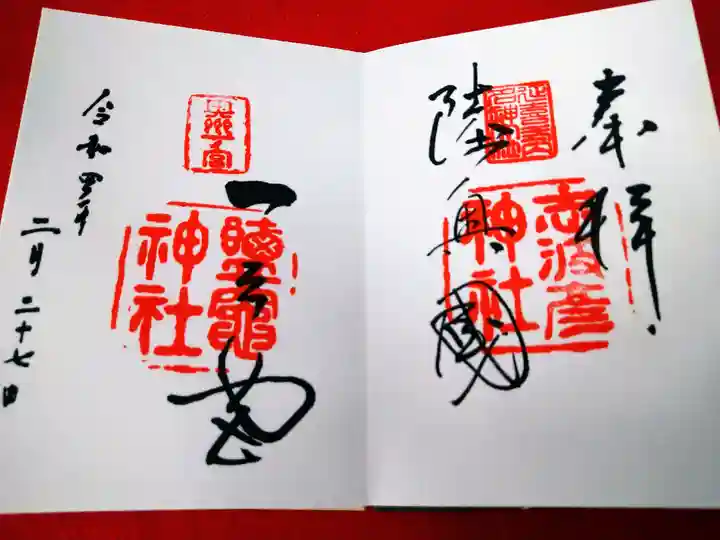 奉拝
陸奥國
志波彦
神社
一之宮
鹽竈
神社
奥州一宮
令和四年
二月二十七日